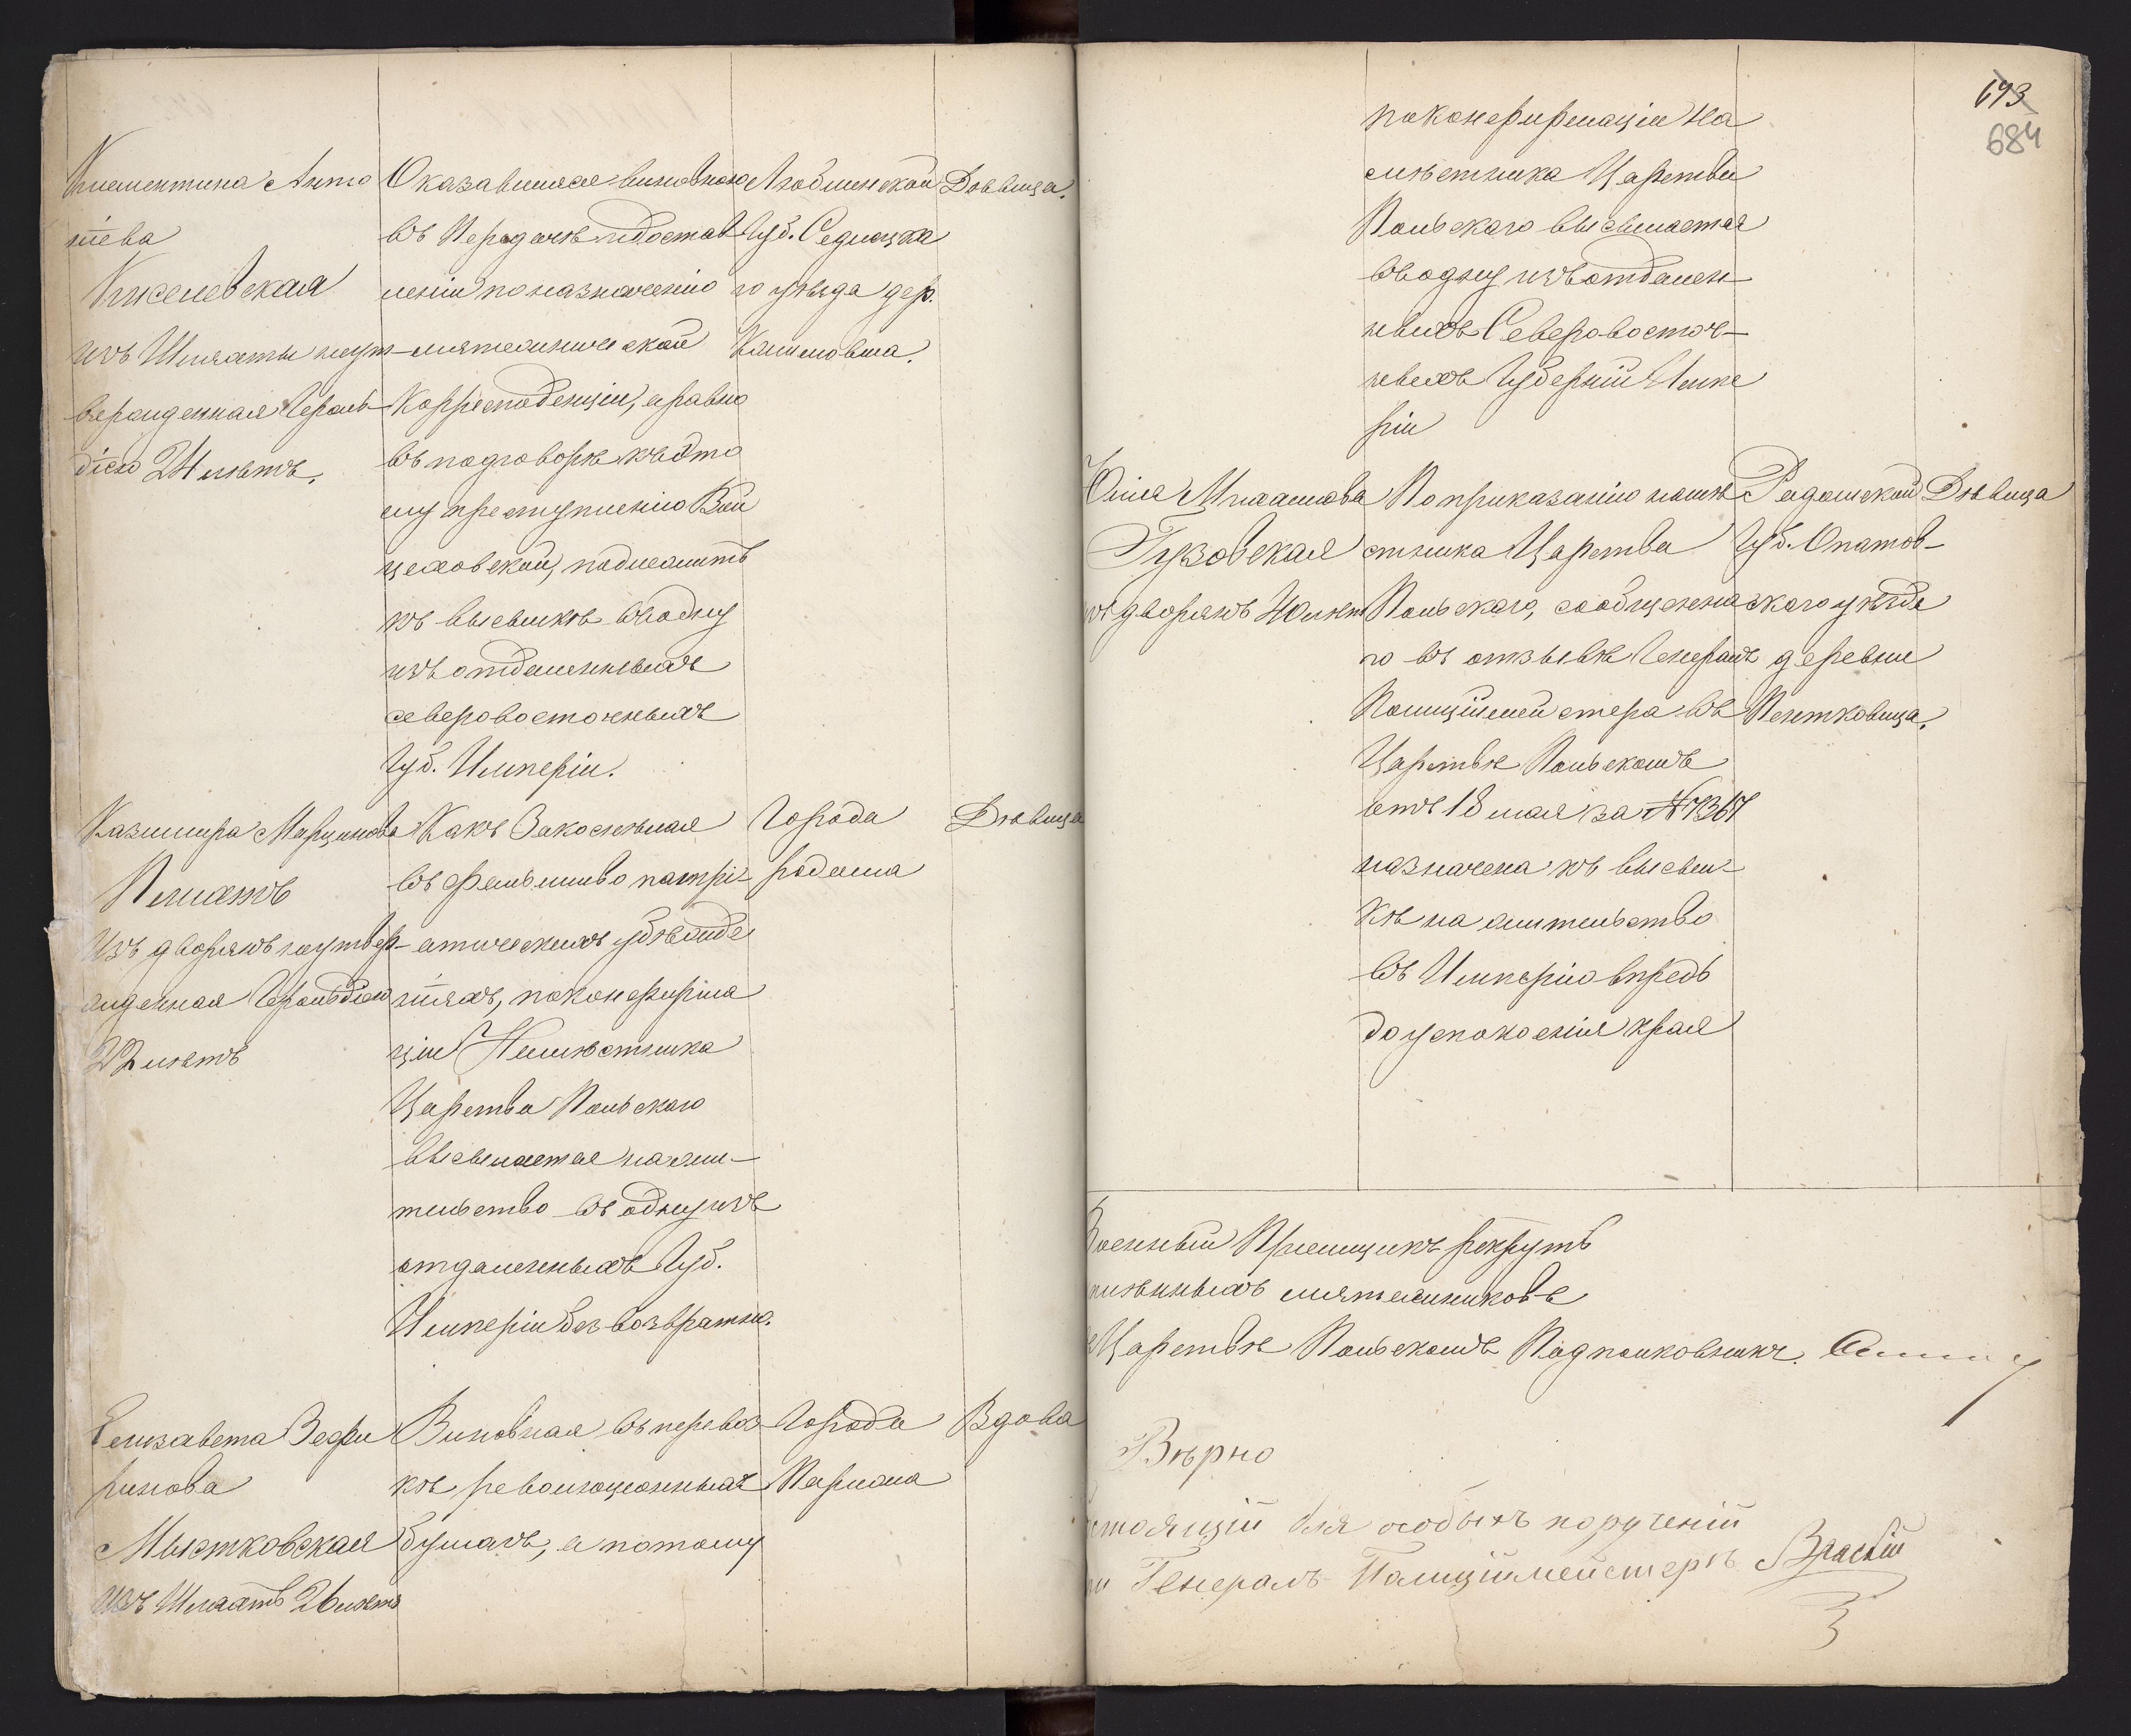 Клементина Анто
нiева
Киселевская
изъ Шляхты неут-
вержденная Героль-
дiею 24 лѣтъ.
Оказавшаяся виновною
въ передачѣ и достав
ленiи по назначенiю
мятежнической
Корресподенцiи, а равно
въ подговорѣ къ это
му преступленiю Вой
цеховской, подлежитъ
къ высылкѣ въ одну
изъ отдаленныхъ
северовосточныхъ
Губ. Имперiи.
Люблинской
Губ. Седлецка
го уѣзда дер.
Дѣвица.
Казимира Марцинова
изъ дворянъ неутвер-
жденная Герольдiею
22 лѣтъ
Какъ Закоснѣлая
въ фальшиво патрi-
отическихъ убѣжде
нiяхъ, по конфирма
цiи Намѣстника
Царства Польскаго
высылается на жи-
тельство въ одну изъ
отдаленныхъ Губ.
Имперiи безвозвратно.
Города
Радома
Дѣвица
Елизавета Зефи
ринова
Мыстковская
изъ Шляхтъ 26 лѣтъ
Виновная въ перевоз
кѣ революцiонныхъ
бумагъ, а потому
Города
Вдова
693
684
по конфирмацiи На
мѣстника Царства
Польскаго высылается
въ одну изъ отдален-
ныхъ Северовосточ-
ныхъ Губернiи Импе
рiи
Юлiя
Гузовская
изъ дворянъ 40 лѣт
По приказанiю намѣ
стника Царства
Польскаго, сообщенна
го въ отзывѣ Генералъ
Полицiймейстера въ
Царствѣ Польскомъ
отъ 18 мая за № 7367
назначена къ высыл-
кѣ на жительство
въ Имперiю впредь
до успокоенiя края
Радомской
Губ. Опатов-
скаго уѣзда
деревни
Пентковица.
Дѣвица
Военный Прiемщикъ рекрутъ
плѣнныхъ мятежниковъ
Царствѣ Польскомъ Подполковникъ
Вѣрно
стоящiй для особыхъ порученiй
Генералъ-Полицiймейстерѣ